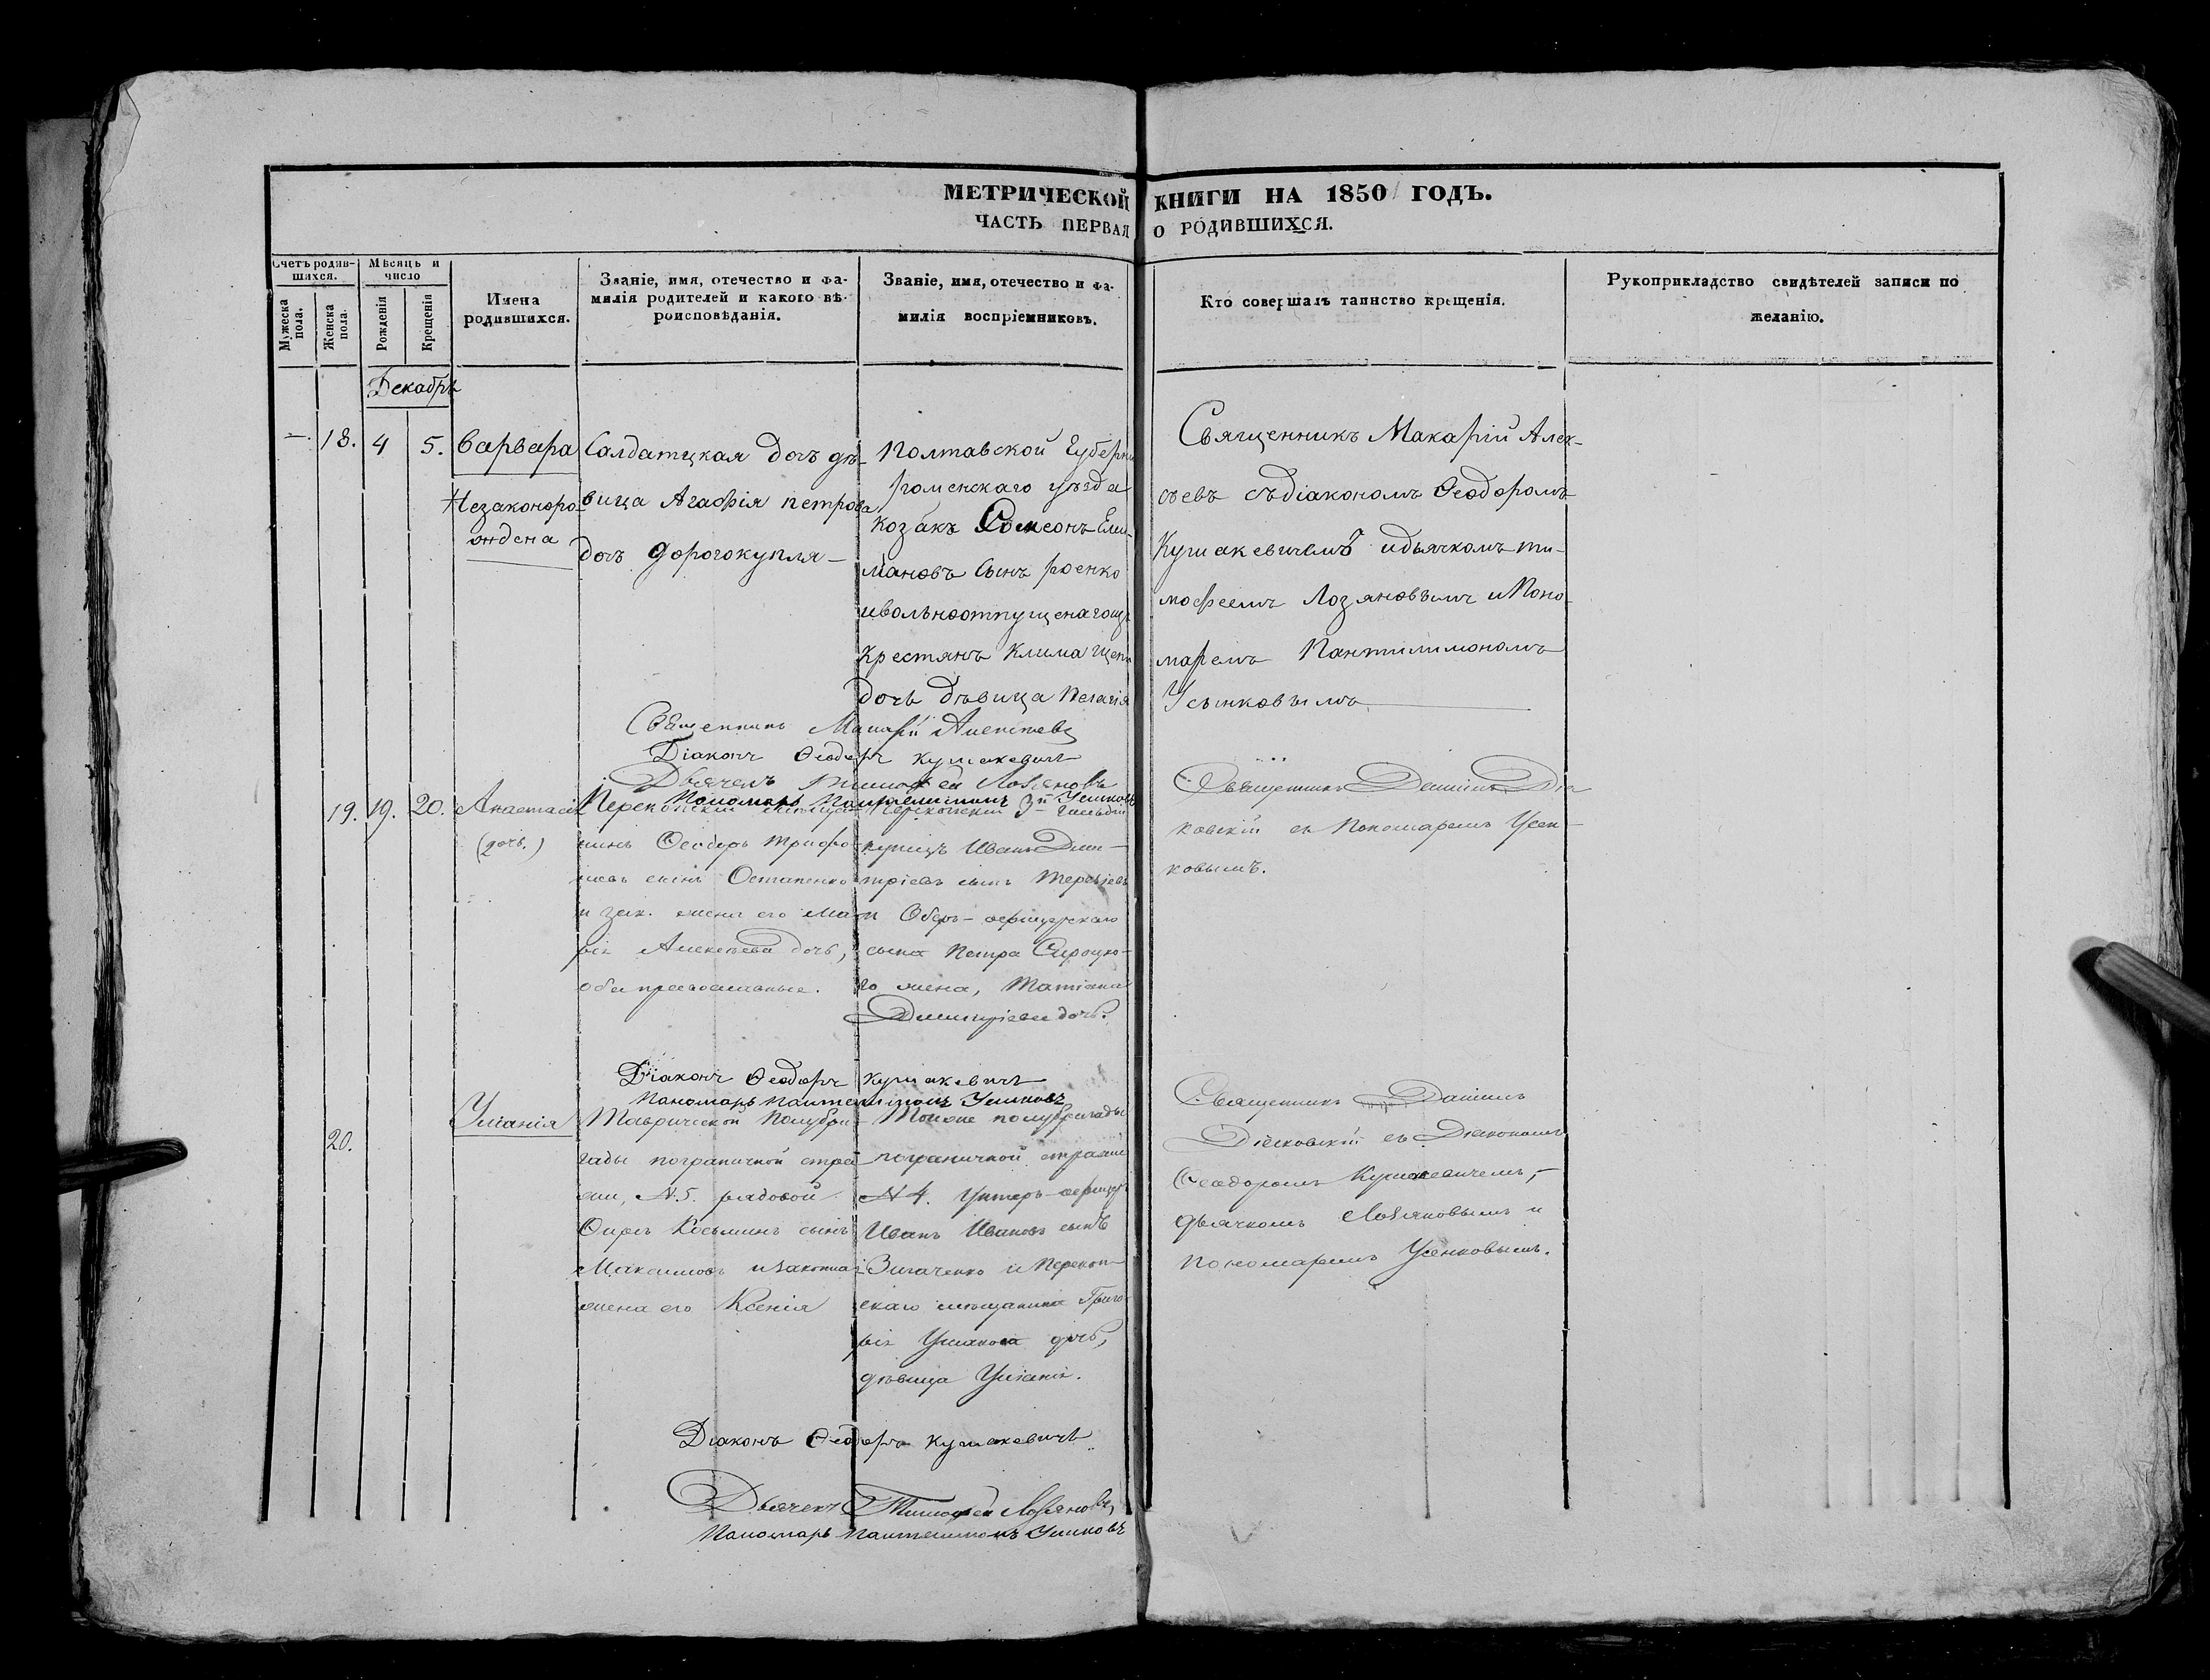 МЕТРИЧЕСКОЙ КНИГИ НА 1850 ГОДЪ.
ЧАСТЬ ПЕРВАЯ О РОДИВШИХСЯ.
Счетъ родив-
шихся.
Мужеска
пола.
Женска
пола.
Мѣсяцъ и
число
Рожденія
Крещенія
Имена
родившихся.
Званіе, имя, отечество и фа-
милія родителей и какого вѣ-
роисповѣданія.
Званіе, имя, отечество и фа-
милія воспріемниковъ.
Кто совершалъ таинство крещенія.
Рукоприкладство свидѣтелей записи по
желанію.
Декабрь
— 18. 4 5.
Варвара
Незаконоро-
ждена
Салдатцкая дочь дѣ-
вица Агафія петрова
дочь дорогокупля —
Полтавской Губерн
роменскаго уѣзда
козакъ Сомеонъ
мановъ Сынъ роенко
ивольноотпущенагоизъ
Крестянъ Клима
дочь дѣвица Пелагія
Священникъ Макарій Алек-
сѣевъ съдіакономъ Ѳеодоромъ
Кушакевичемъ идьячкомъ ти-
мофеемъ Лозяновымъ иПоно-
маремъ Пантилимономъ
Усѣнковымъ
Священникъ Макарій Алексѣевъ
Діаконъ Ѳеодоръ Кушакевичъ
Дьячекъ Тимофей Лозяновъ
Пономарь Пантелимонъ
19. 19. 20.
Анастасія
(дочь.)
Перекопскій мѣща-
нинъ Ѳеодоръ Трифо-
новъ сынъ Остапенко
и зак. жена его Ма-
рія Алексѣева дочь,
оба православные.
Перекопскій 3й Гильдіи
купецъ Иванъ Дми-
тріевъ сынъ
и Оберъ-офицерскаго
сына Петра Сироцко-
го жена, Татіана
Димитріева дочь.
Священникъ Даніилъ Діа-
ковскій съ Пономаремъ Усен-
ковымъ.
Діаконъ Ѳеодоръ Кушакевичъ
Паномарь Пантелимонъ
20.
Уліанія
Таврической Полубри-
гады пограничной стра-
жи, N.5. рядовой
Косьминъ сынъ
Максимовъ изаконная
жена его Ксенія
Тойже полубригады
пограничной стражи
N 4. Унтеръ-офицеръ
Иванъ Ивановъ сынъ
и Перекоп-
скаго мѣщанина Григо-
рія Ушакова дочь,
дѣвица Уліанія.
Священникъ Даніилъ
Діяковскій съ Діакономъ
Ѳеодоромъ Кушакевичемъ, -
дьячкомъ Лозяновымъ и
пономаремъ Усенковымъ.
Діаконъ Ѳеодоръ Кушакевичъ
Дьячекъ Тимофей Лозяновъ
Паномарь Пантелимонъ